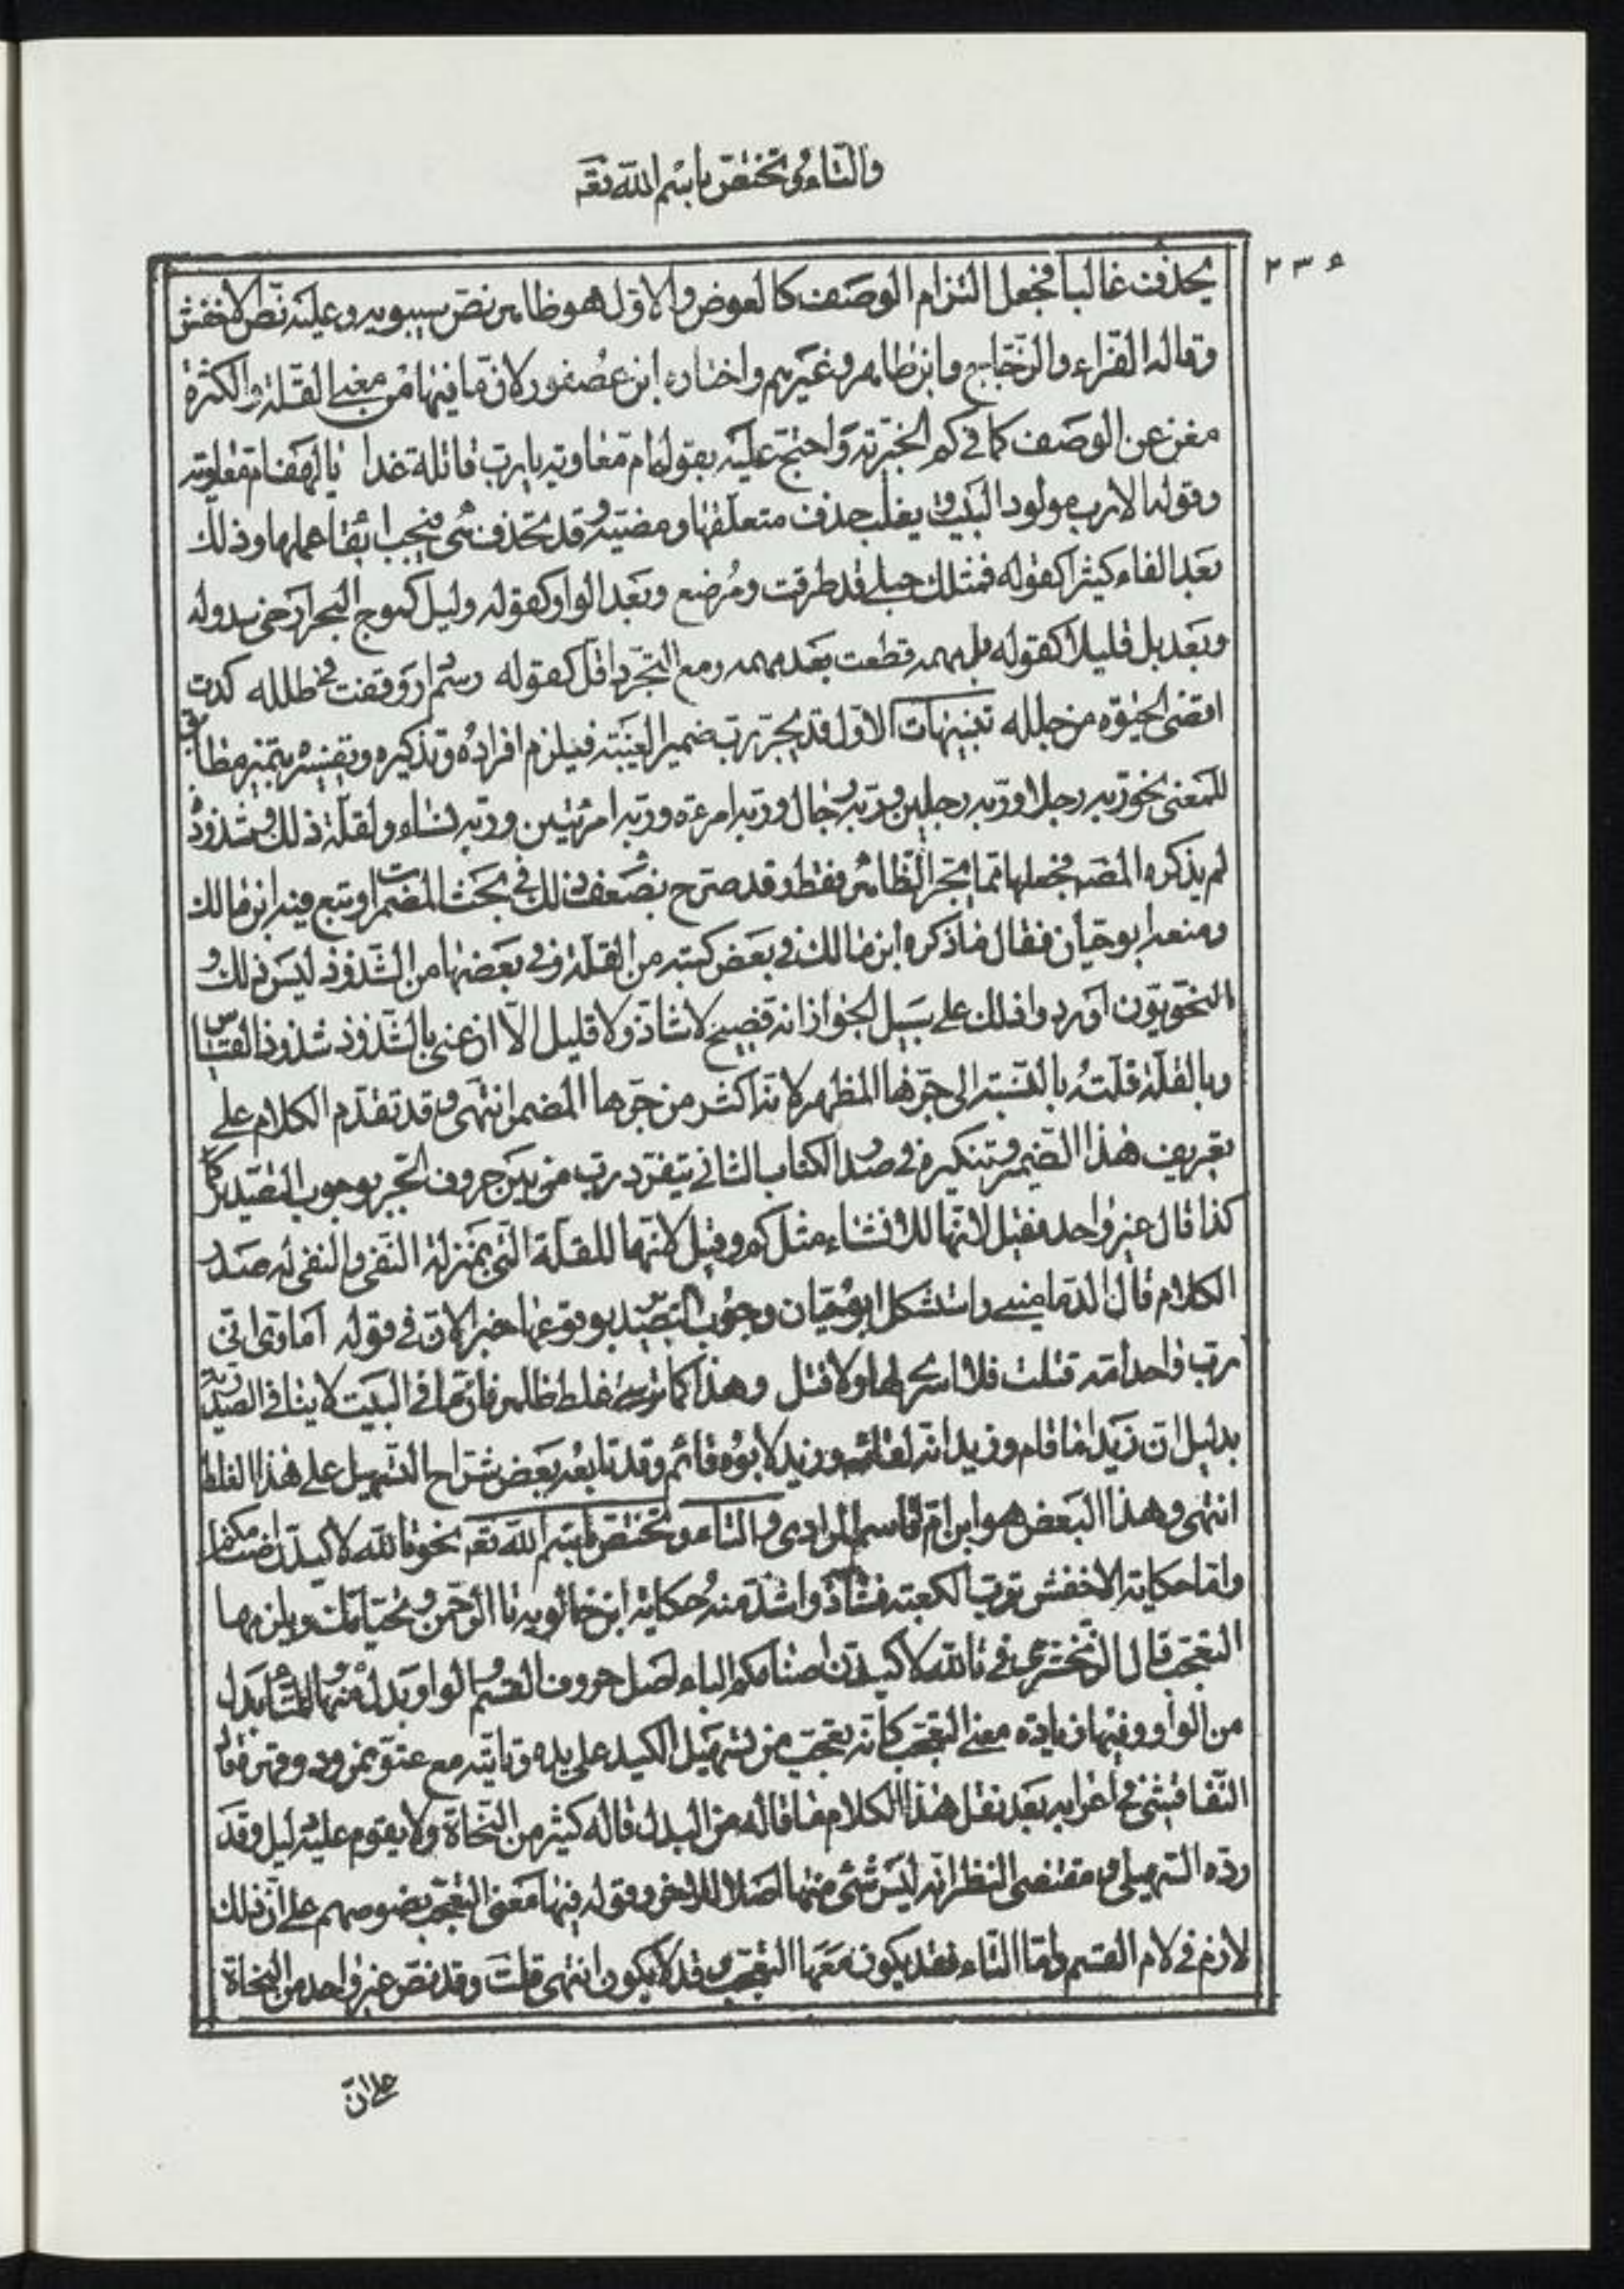 والتاء وتختص باسم الله تعـ
٢٣٤
يحذف غالبا فجعل التزام الوصف كالعوض والاول هو ظاهر نص سيبويه وعليه نص الاخفش
وقاله الفراء والزجاج وابن طاهر وغيرهم واختاره ابن عصفور لان ما فيها من معنى القلة والكثرة
مغن عن الوصف كما فى كم الخبرية واحتج عليه بقول ام معاوية يا رب قائلة غدا يا لهف ام معاوية
وقوله الا رب مولود البيت ويغلب حذف متعلقها ومضيه وقد تحذف هى فيجب ابقاء عملها وذلك
بعد الفاء كثيرا كقوله فمثلك حبلى قد طرقت ومرضع وبعد الواو كقوله وليل كموج البحر ارخى سدوله
وبعد بل قليلا كقوله بل مهمه قطعت بعد مهمه ومع التجرد اقل كقوله رسم دار وقفت فى طلله كدت
اقضى الحيوة من جلله تنبيهات الاول قد يجر برب ضمير الغيبة فيلزم افراده وتذكيره وتفسيره بتميز مطابق
للمعنى نحو ربه رجلا وربه رجلين وربه رجال وربه امرءة وربه امرئتين وربه نساء ولقلة ذلك وشذوذه
لم يذكره المصـ فجعلها مما يجر الظاهر فقط وقد صرح بضعف ذلك فى بحث المضمرات وتبع فيه ابن مالك
ومنعه ابو حيان فقال ما ذكره ابن مالك فى بعض كتبه من القلة وفى بعضها من الشذوذ ليس ذلك و
النحويون اوردوا ذلك على سبيل الجواز انه فصيح لا شاذ ولا قليل الا ان عنى بالشذوذ شذوذ القياس
وبالقلة قلته بالنسبة الى جرها المظهر لانه اكثر من جرها المضمر انتهى وقد تقدم الكلام على
تعريف هذا الضمير وتنكيره فى صدر الكتاب الثانى يتفرد رب من بين حروف الجر بوجوب التصدير
كذا قال غير واحد فقيل لانها للانشاء مثل كم وقيل لانها للقلة التى بمنزلة النفى والنفى له صدر
الكلام قال الدمامينى واستشكل ابو حيان وجوب التصدير بوقوعها خبرا لان فى قوله اماوى انى
رب واحد امه قتلت فلا اسر لها ولا قتل وهذا كما ترى غلط ظاهر فان ما فى البيت لا ينافى الصدرية
بدليل ان زيدا ما قام وزيد انه لقائم وزيد لابوه قائم وقد تابعه بعض شراح التسهيل على هذا الغلط
انتهى وهذا البعض هو ابن ام قاسم المرادى والتاء وتختص باسم الله تعـ نحو تالله لاكيدن اصنامكم
واما حكاية الاخفش ترب الكعبة فشاذ واشذ منه حكاية ابن خالويه تا الرحمن وتحياتك ويلزمها
التعجب قال الزمخشرى فى تالله لاكيدن اصنامكم الباء اصل حروف القسم الواو وبدل منها التاء بدل
من الواو وفيها زيادة معنى التعجب كانه تعجب من تسهيل الكيد على يده وتاتيه مع عتو نمرود وقهره فقال
التفتازانى فى اعرابه بعد نقل هذا الكلام فما قاله من البدل قاله كثير من النحاة ولا يقوم عليه دليل وقد
رده السهيلى ومقتضى النظر انه ليس شىء منها اصلا للاخر وقوله فيها معنى التعجب نصوصهم على ان ذلك
لازم فى لام القسم واما التاء فقد يكون معها التعجب وقد لا يكون انتهى قلت وقد نص غير واحد من النحاة
على ان